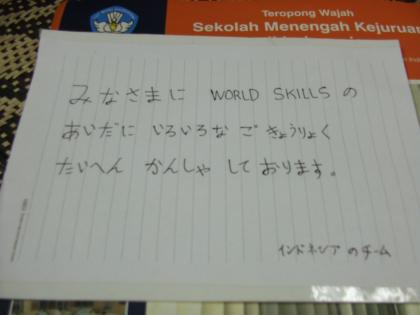 Teropong Wajah
Sekolah Menengah Kejuruan
みなさまに WORLD SKILLS の
あいだに いろいろな ご きょうりょく
たいへん かんしゃ して おります。
インドネシア の チーム